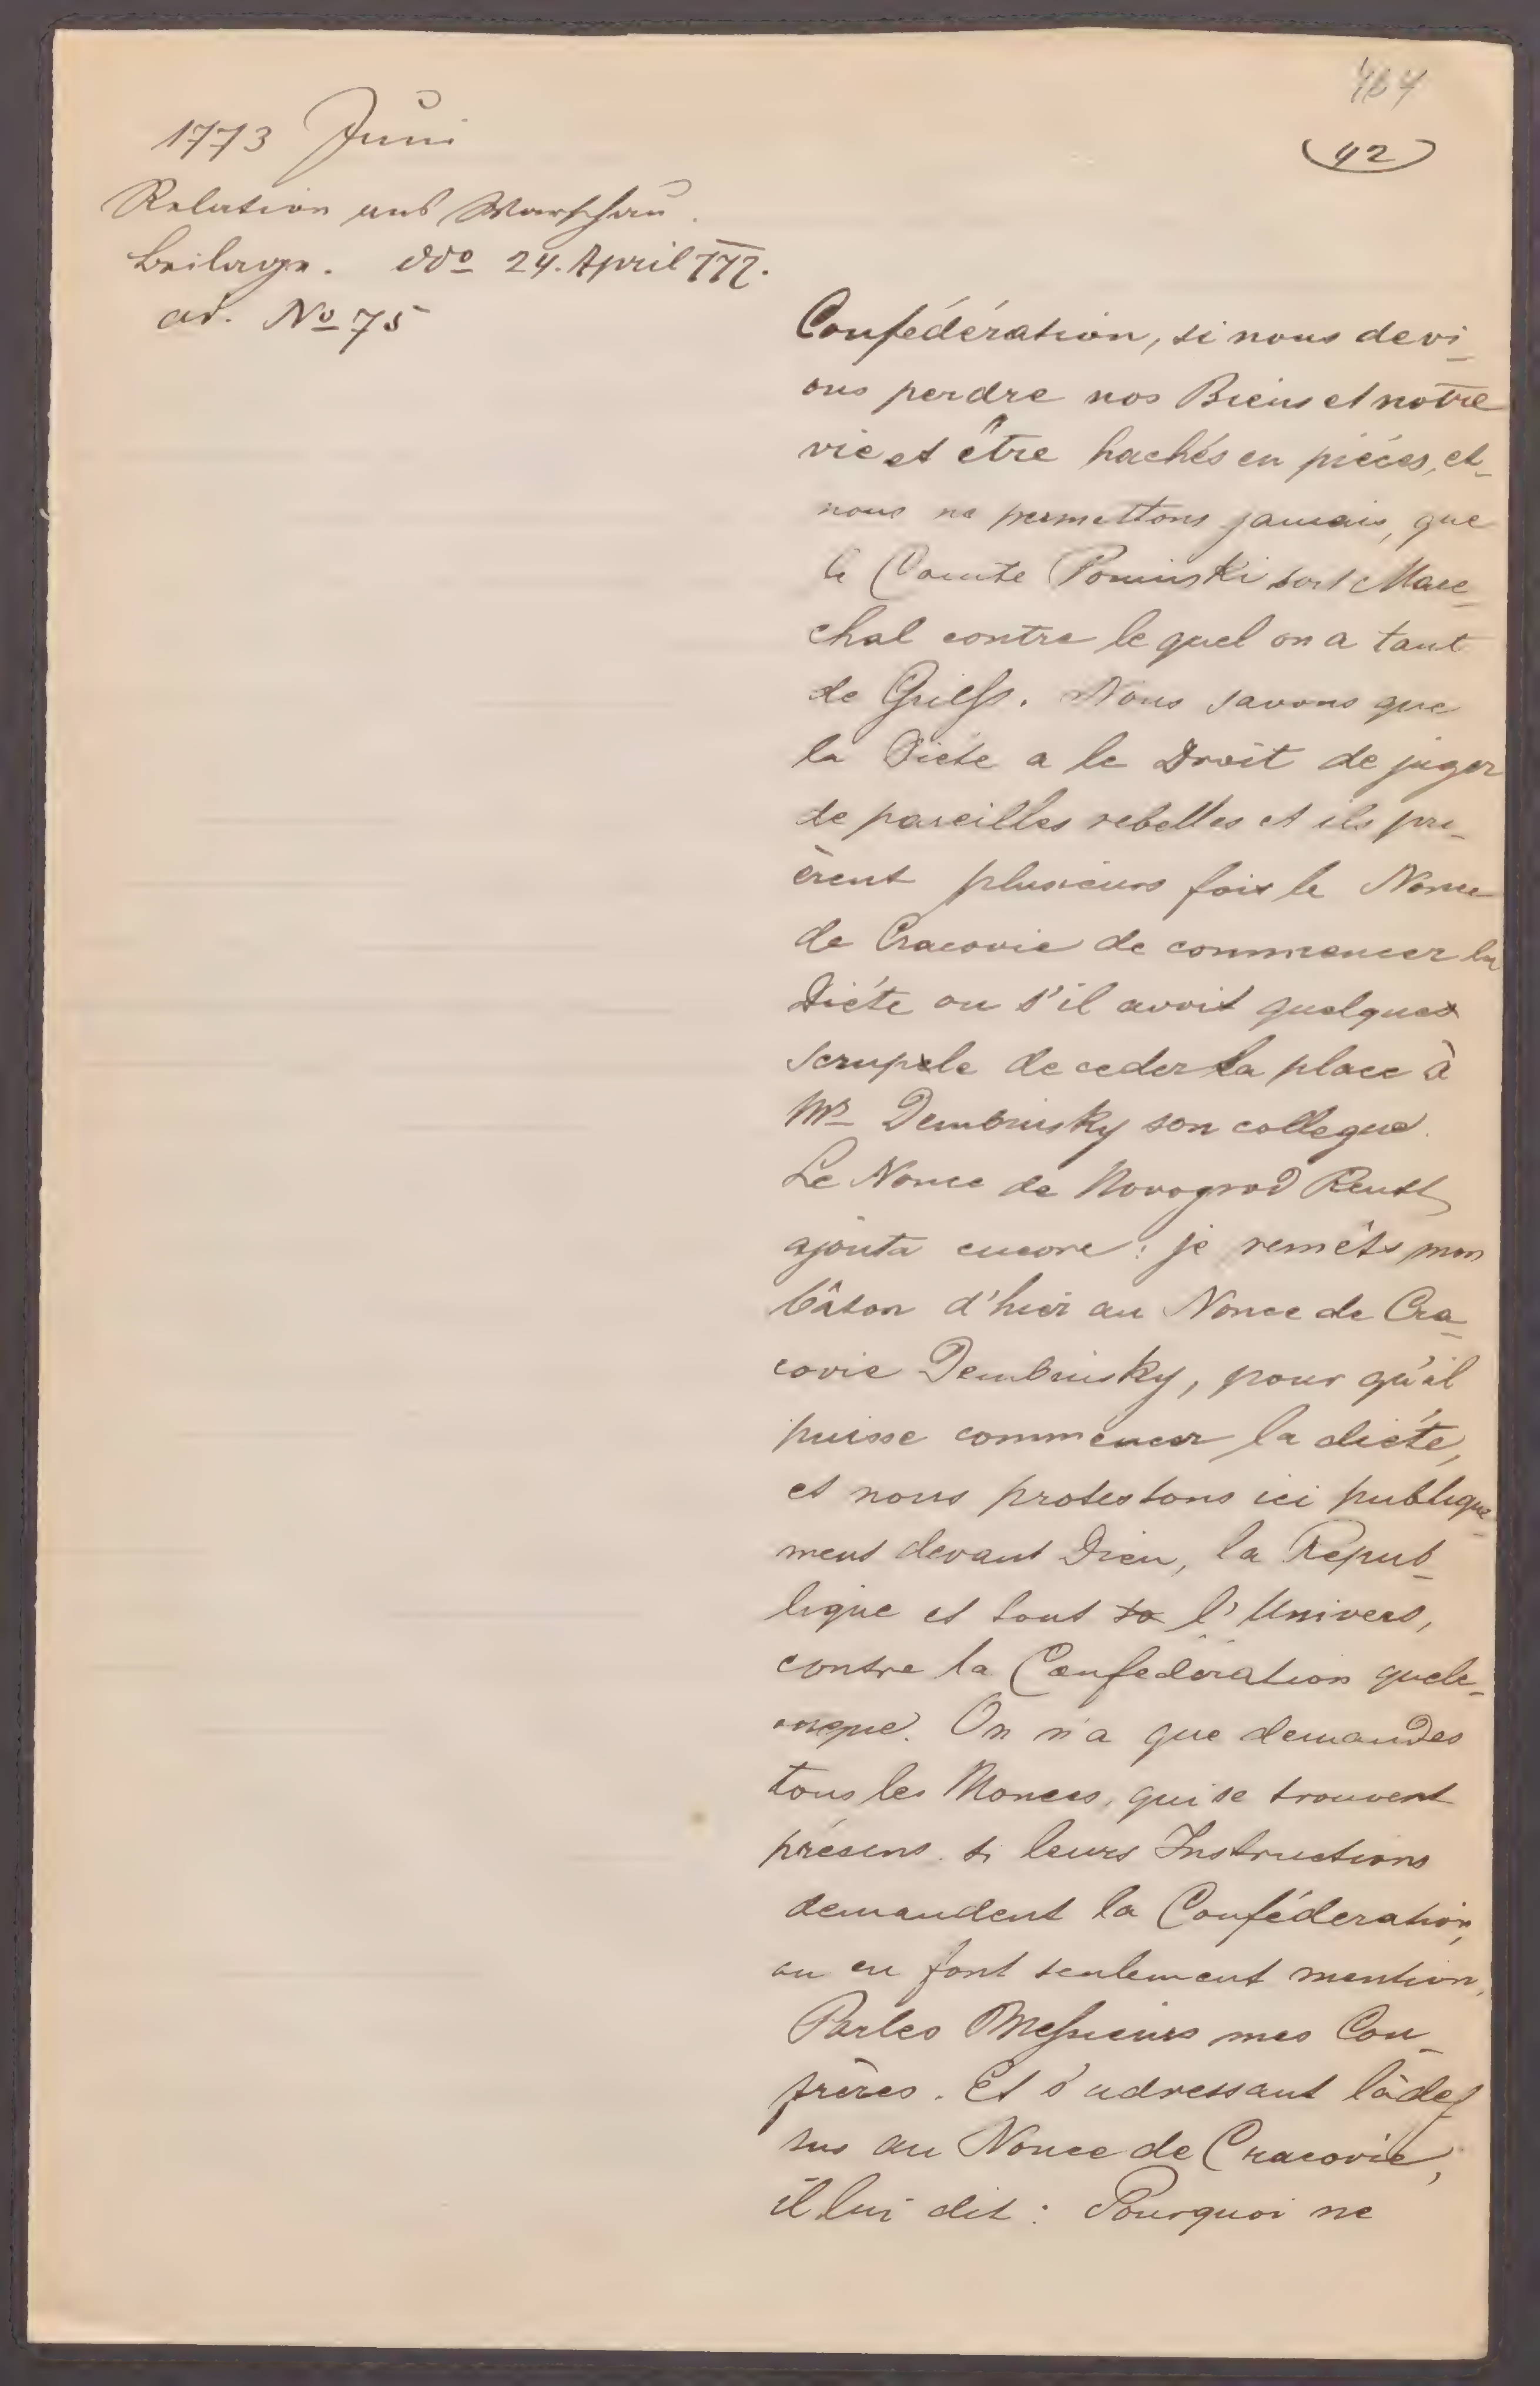 464
(42)
1773 Juni
Relation aus Warschau.
Beilage. ddo 24. April 772.
ad. No 75
Confédération, si nous devi-
ons perdre nos Biens et notre
vie et être hachés en piéces, et
nous ne permettons jamais, que
le Comte Poninski soit Mare-
chal contre le quel on a tant
de Griefs. Nous savons que
la Diéte a le Droit de juger
de pareilles rebelles et ils pri-
èrent plusieurs fois le Nonce
de Cracovie de commencer la
Diéte ou s'il avoit quelques
scrupule de ceder sa place à
Mr Dembinsky son collegue.
Le Nonce de Novogrod
ajouta encore: je remèts mon
bâton d'hier au Nonce de Cra-
covie Dembinsky, pour qu'il
puisse commencer la diéte,
et nous protestons ici publique-
ment devant Dieu, la Repub-
lique et tout l'Univers,
contre la Confedération quelc-
onque. On n'a que demandes
tous les Nonces, qui se trouvent
présens si leurs Instructions
demandent la Conféderation,
ou en font seulement mention,
Parles Messieurs mes Con-
frères. Et s'adressant làdes
sus au Nonce de Cracovie,
il lui dit: Pourquoi ne